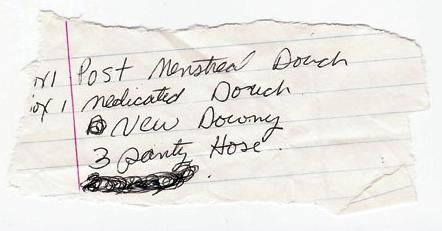 x1 Post Menstreal Douch
ox 1 medicated Douch.
New Downy
3 panty Hose.